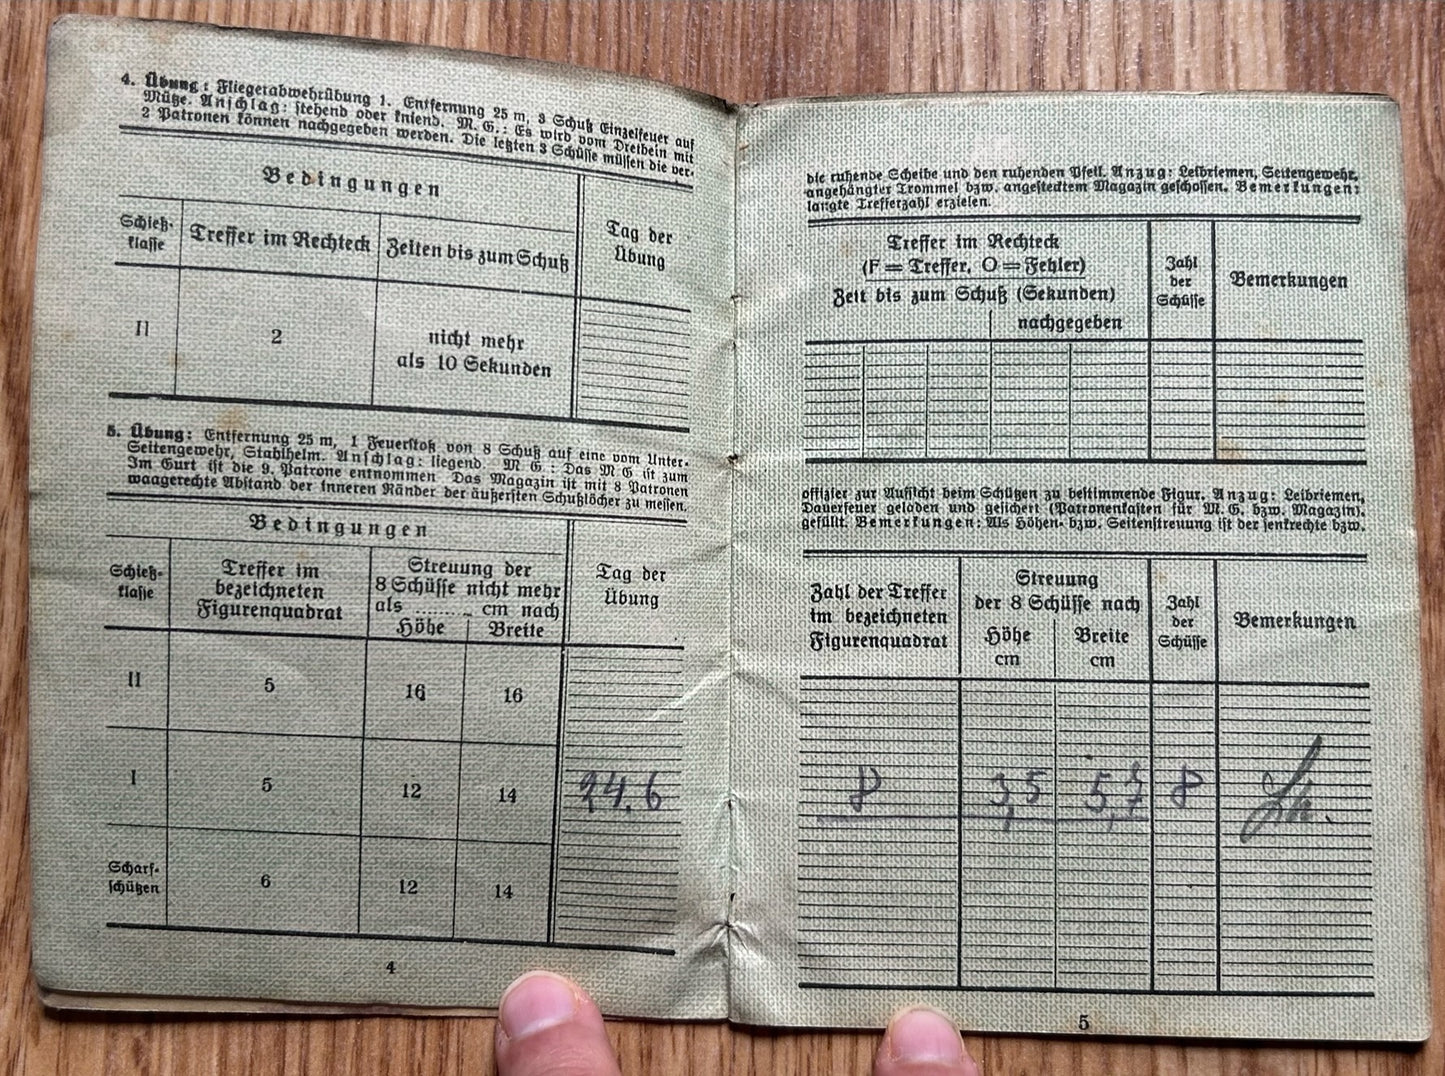 4. Übung: Fliegerabwehrübung 1. Entfernung 25 m, 3 Schuß Einzelfeuer auf
Mütze. Anschlag: stehend oder kniend. M. G.: Es wird vom Dreibein mit
2 Patronen können nachgegeben werden. Die letzten 3 Schüsse müssen die ver-
Bedingungen
Schieß-
klasse
Treffer im Rechteck
Zeiten bis zum Schuß
Tag der
Übung
II
2
nicht mehr
als 10 Sekunden
5. Übung: Entfernung 25 m, 1 Feuerstoß von 8 Schuß auf eine vom Unter-
Seitengewehr, Stahlhelm. Anschlag: liegend. M G.: Das M G ist zum
Im Gurt ist die 9. Patrone entnommen Das Magazin ist mit 8 Patronen
waagerechte Abstand der inneren Ränder der äußersten Schußlöcher zu messen.
Bedingungen
Schieß-
klasse
Treffer im
bezeichneten
Figurenquadrat
Streuung der
8 Schüsse nicht mehr
als ......... cm nach
Höhe
Breite
Tag der
Übung
II
5
16
16
I
5
12
14
24.6
Scharf-
schützen
6
12
14
4
die ruhende Scheibe und den ruhenden Pfeil. Anzug: Leibriemen, Seitengewehr,
angehängter Trommel bzw. angestecktem Magazin geschossen. Bemerkungen:
langte Trefferzahl erzielen.
Treffer im Rechteck
(F = Treffer, O = Fehler)
Zeit bis zum Schuß (Sekunden)
nachgegeben
Zahl
der
Schüsse
Bemerkungen
offizier zur Aufsicht beim Schützen zu bestimmende Figur. Anzug: Leibriemen,
Dauerfeuer geladen und gesichert (Patronenkasten für M. G. bzw. Magazin).
gefüllt. Bemerkungen: Als Höhen- bzw. Seitenstreuung ist der senkrechte bzw.
Zahl der Treffer
im bezeichneten
Figurenquadrat
Streuung
der 8 Schüsse nach
Höhe
cm
Breite
cm
Zahl
der
Schüsse
Bemerkungen
8
3,5
5,7
8
5